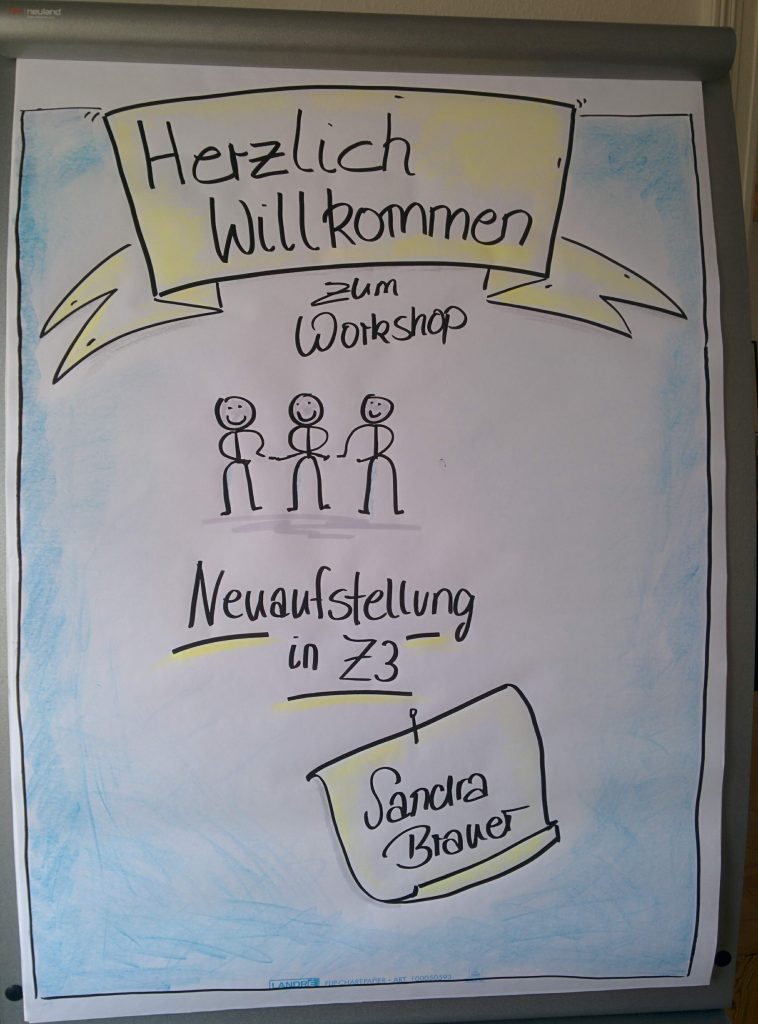 neuland
Herzlich
Willkommen
zum
Workshop
Neuaufstellung
in Z3
Sandra
Brauer
LANDRÉ FLIPCHARTPAPIER • ART. 100050593